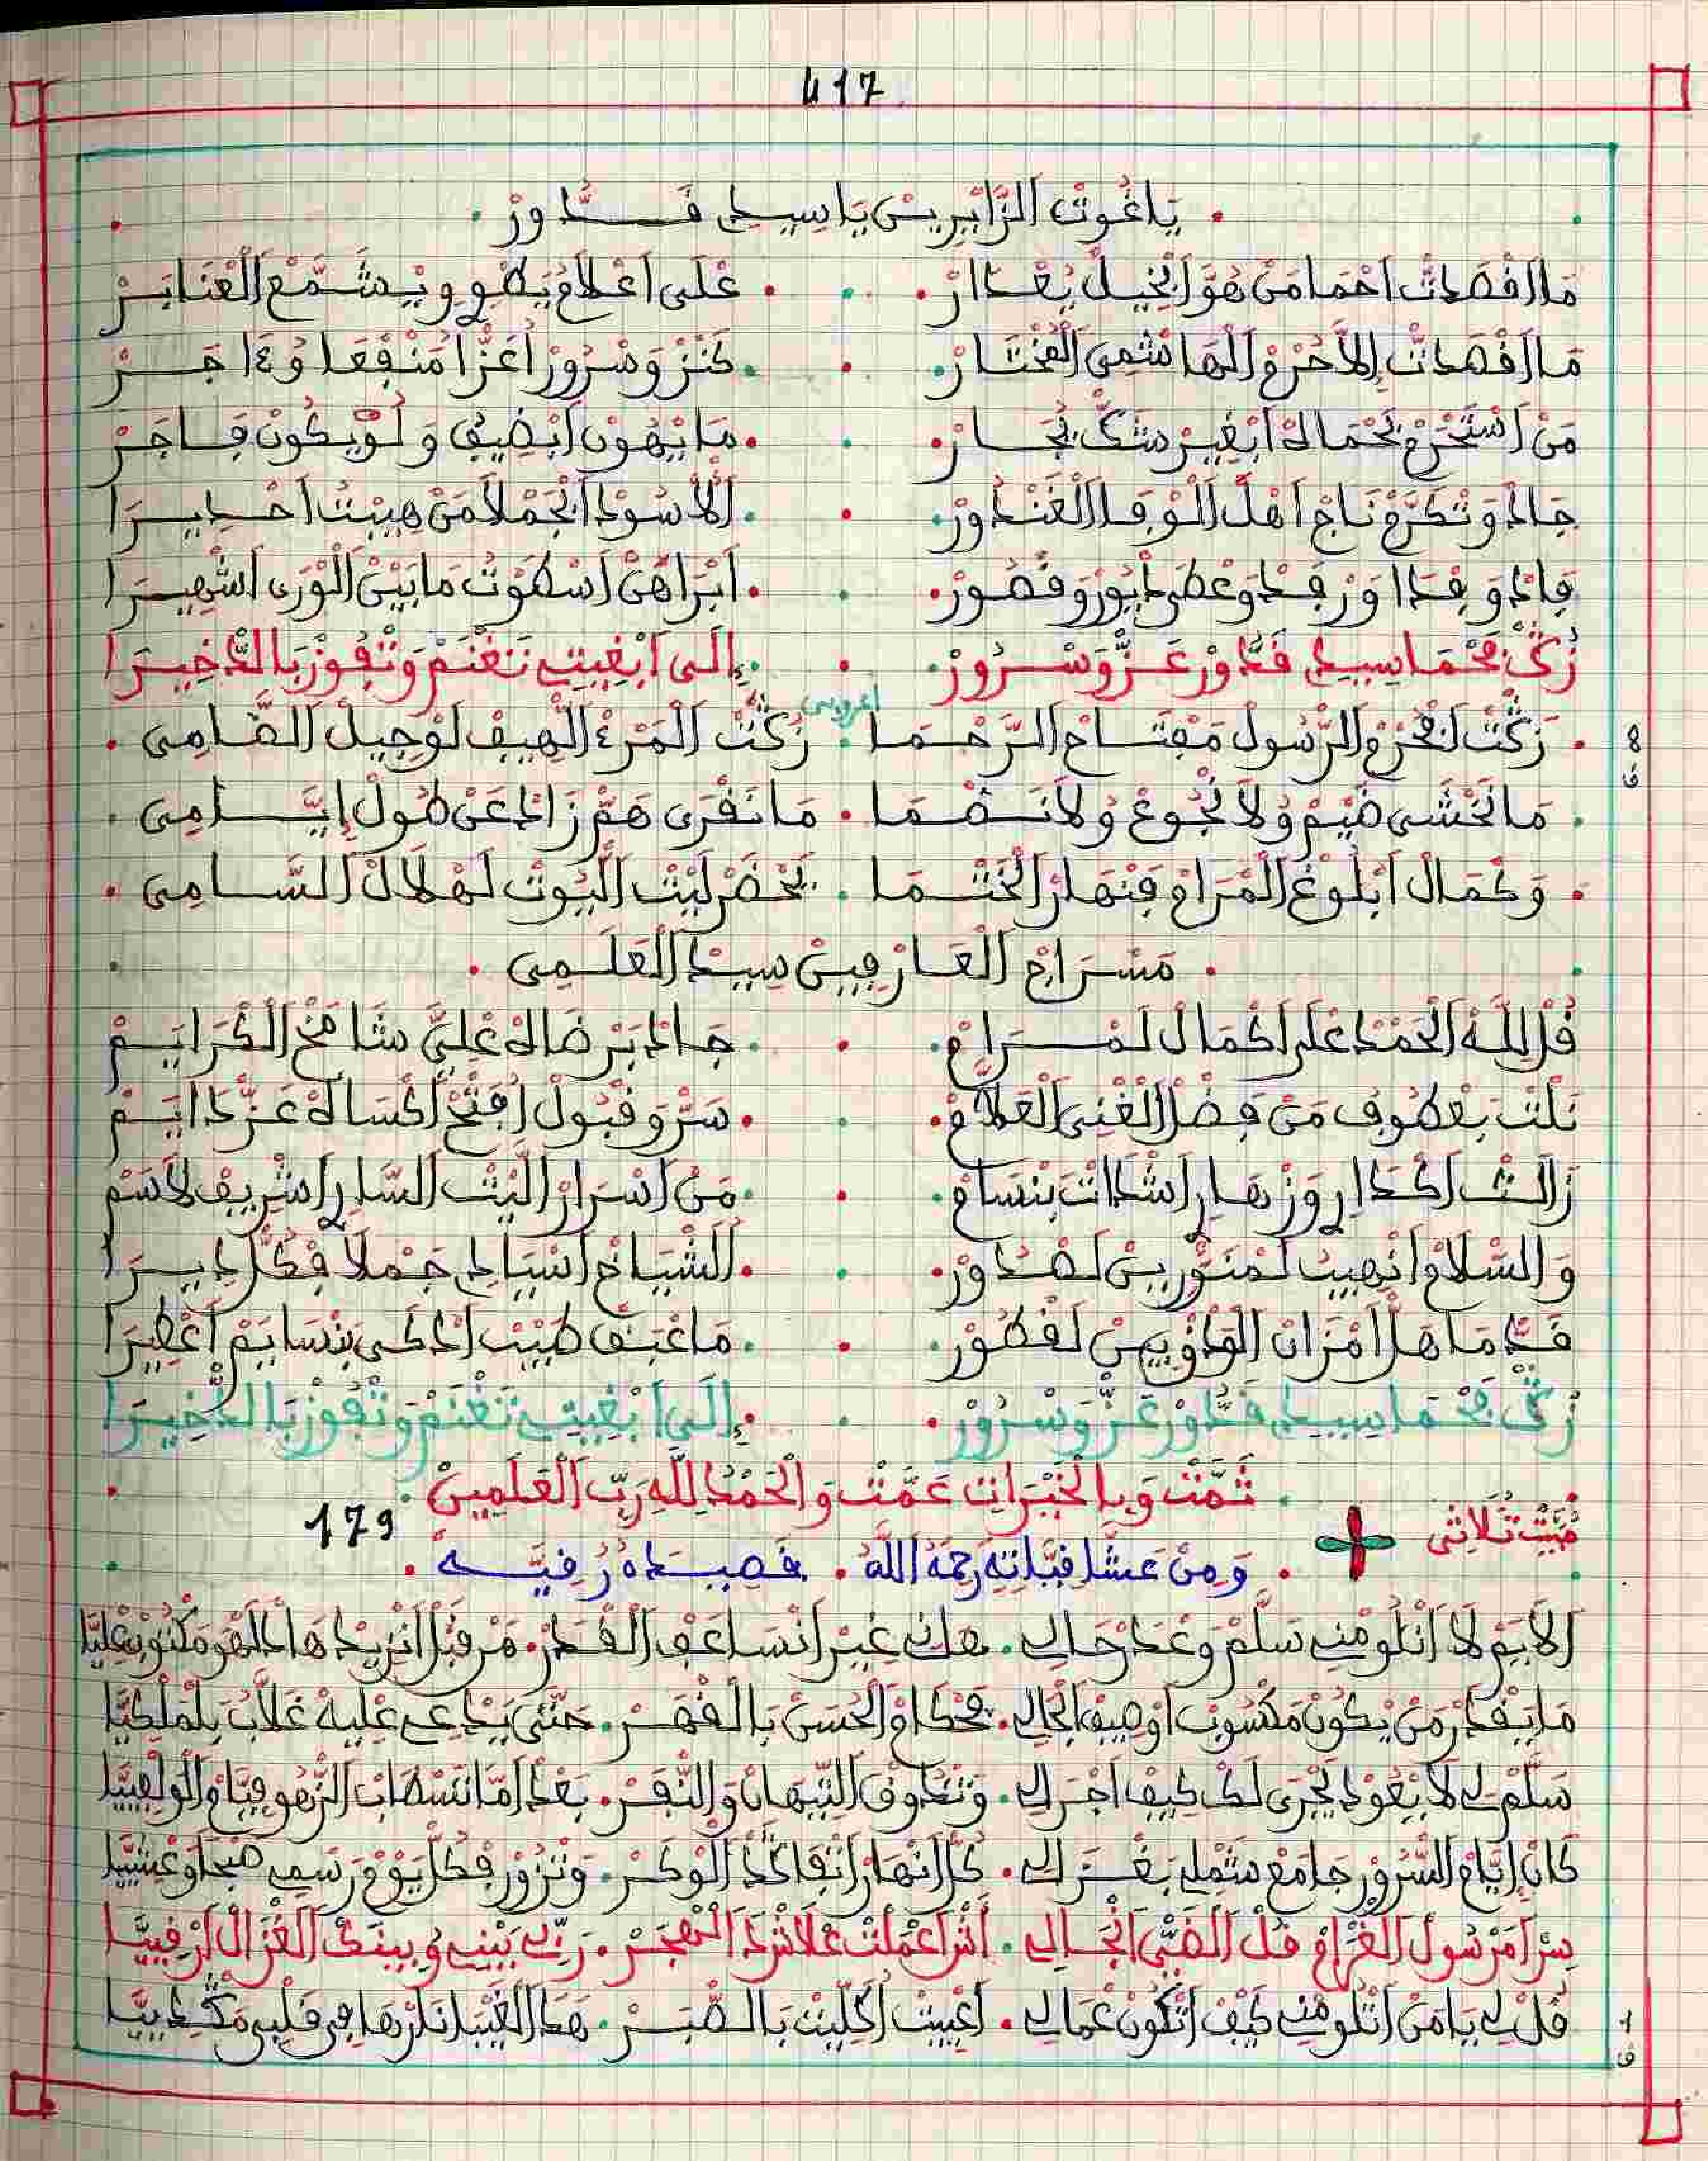 417
يَا غُوتْ الزَّايْرِيـنْ يَا سِيـدِي قَـــدُّورْ
مَا اقْصَدْتْ احْمَا مَنْ هُوَ ابْخِيـلْ يُغْـدَارْ . عْلَى اعْلَامُ يَطْوِي وِيْشَمَّعْ الْعْنَابَـرْ
مَا اقْصَدْتْ إلاَّ حُرْمْ الْهَاشْمِي الْمُخْتَـارْ . كَنْزْ وَسْرُورْ اعَزْ امَنْفْعَا وُ جَـرْ
مَنْ اسْتَحْرَمْ بَحْمَاكْ ابْغِيـرْ شَكّْ يُجَـارْ . مَا يْهُونْ ابْضِيفُ وَلَوْ يْكُونْ فَـاجَـرْ
جَادْ وَتْكَرَّمْ تَاجْ اهْلْ الْوْفَا الْغَنْدُورْ . الْأُسُودْ الْجَمْلَا مَنْ هِيبْتُ احْـدِيـرَا
فَادْ وَفْدَا وَرْفَدْ وَعْطَى ادْيُورْ وَقْصُورْ . ابْرَاهَنْ اسْطَوْتُ مَا بَيْنْ الْوْرَى اشْهِيـرَا
زُكْ فَحْمَا سِيـدِي قَدُّورْ عَزّْ وَسْـرُورْ . إِلَى ابْغِيتِ تَغْنَمْ وَتْفُوزْ بَالدّْخِيـرَا
اعروبي
زَكْتْ لَحْرَمْ الرّْسُولْ مَفْتَـاحْ الرَّحْـمَـا . زُكْتْ الْمَرْءْ الْهِيفْ لَوْجِيـلْ الصَّـامِي
8
ق
مَا نَخْشَى ضَيْمْ وُلَا نْجُوعْ وُلَا نَـظْـمَـا . مَا نَقْرَى هَمّْ زَادْ عَنْ طُولْ إيَّـــامِي
وَكْمَالْ ابْلُوغْ الْمْرَامْ فَنْهَارْ الْخَتْـمَـا . يَحْضَرْ لَيْثْ الْيُوتْ لَهْلَالْ السَّــامِي
مَسْـرَاجْ الْعَـارْفِيـنْ سِيـدْ الْعَلَـمِي
قُلْ لِلَّهْ الْحَمْدْ عْلَى اكْمَالْ لَمْـــرَامْ . جَـادْ بَرْضَاهْ عْلِيَّ شَامَخْ الْكْرَايَـمْ
نَلْتْ بَعْطُوفُ مَنْ فَضْلْ الْغْنِي الْعَلَّامْ . سَرّْ وَقْبُولْ افْتَحْ اكْسَاهْ عَزّْ دَايَـمْ
زَالْتْ اكْدَارِي وَزْهَـارِي اشْدَاتْ بَنْسَامْ . مَنْ اسْرَارْ اللِّيثْ السَّارِي اشْرِيفْ لَاسَمْ
وَالسّْلَامْ انْهِيبُ لَمْنَوّْرِيـنْ لَصْـدُورْ . الشّْيَاخْ اسْيَادِي جَمْلَا فْكُلّْ دِيـرَا
قَدّْ مَا هَلّْ امْزَانْ الْوَدْقْ بِيـنْ لَقْطُورْ . مَا عْبَقْ طِيبْ اذْكَى بَنْسَايَمْ اعْطِيرَا
زُكْ فَحْمَا سِيـدِي قَدُّورْ عَزّْ وَسْرُورْ . إِلَى ابْغِيتِ تَغْنَمْ وَتْفُوزْ بَالدّْخِيـرَا
ثَمَّتْ وَبِالْخَيْرَاتِ عَمَّتْ وَالْحَمْدُ لِلَّهِ رَبِّ الْعَلَمِينْ
مْبَيَّتْ ثَلَاثِي
179
وَمِنْ عَشَّاقِيَّاتِهِ رَحِمَهُ اللَّهُ . قصيـدة رْقِيَّـــة
الْأَيَمْ لَا اتْلُومْنِي سَلَّمْ وَعْدَرْ حَالِي . هَانِ غِيرْ انْسَاعَفْ الْقْدَرْ . مَنْ قَبْلْ انْزِيدْ هَاذْ الْهْوَ مَكْتُوبْ عْلِيَّا
مَا يَقْدَرْ مَنْ يْكُونْ مَكْسُوبْ اوْصِيفْ الْجَالِي . فَحْكَامْ الْحُسَنْ بَالْقْهَـرْ . حَتَّى يَدْعِي عْلِيهْ غَلَّابْ بِلَمْلَكِيَّا
سَلَّمْ لِي لَا يْعُودْ يَجْرَى لَكْ كِيفْ اجْرَى لِي . وَتْدُوقْ التِّيهَانْ وَالنّْفَرْ . بَعْدْ امَّا تَسْطَابْ الزّْهُو فِيَّامْ الْوَلْفِيَّا
كَانْ إيَّامْ السّْرُورْ جَامَعْ شَمْلِي بَغْـزَالِي . كُلّْ انْهَارْ انْفَاكَدْ الْوْكَـرْ . وَنْزُورْ فْكُلّْ يَوْمْ رَسْمِي صَبْحَا وَعْشِيَّا
سِرْ امَرْسُولْ الْغْرَامْ قُلْ الضَّيّْ انْجَـالِي . أَشْ اعْمَلْتْ عْلَاشْ دَ الْهْجَـرْ . رَبِّي بَيْنِي وُبِينَكْ الْغْزَالْ ارْقِيَّـا
قُلْ لِي يَا مَنْ اتْلُومْنِي كِيفْ اتْكُونْ عْمَالِي . اعْيِيتْ اكْلِيتْ بَالصّْبَـرْ . هَدَ الْغِيبَا نَارْهَا فِي قَلْبِي مَكْدِيَّـا
1
ق